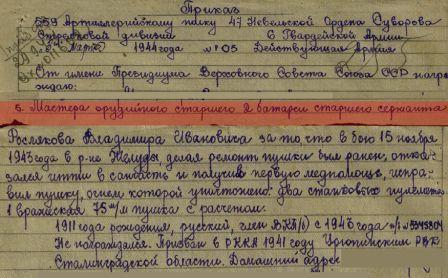 Приказ
559 Артиллерийскому полку 47 Невельской Ордена Суворова
Стрелковой дивизии 6 Гвардейской Армии
марта 1944 года № 05 Действующая Армия
От имени Президиума Верховного Совета Союза ССР награ
ждаю:
5. Мастера орудийного старшего 2 батареи старшего сержанта
Рослякова Владимира Ивановича за то, что в бою 15 ноября
1943 года в р-не делая ремонт пушки был ранен, отка
зался итти в санчасть и получив первую медпомощь, испра
вил пушку, огнем которой уничтожено: два станковых пулемета
1 вражеская 75 м/м пушка с расчетом.
1911 года рождения, русский, член ВКП(б) с 1943 года п/б № 5345804
Не награждался. Призван в РККА 1941 году Урюпинским РВК
Сталинградской области. Домашний адрес